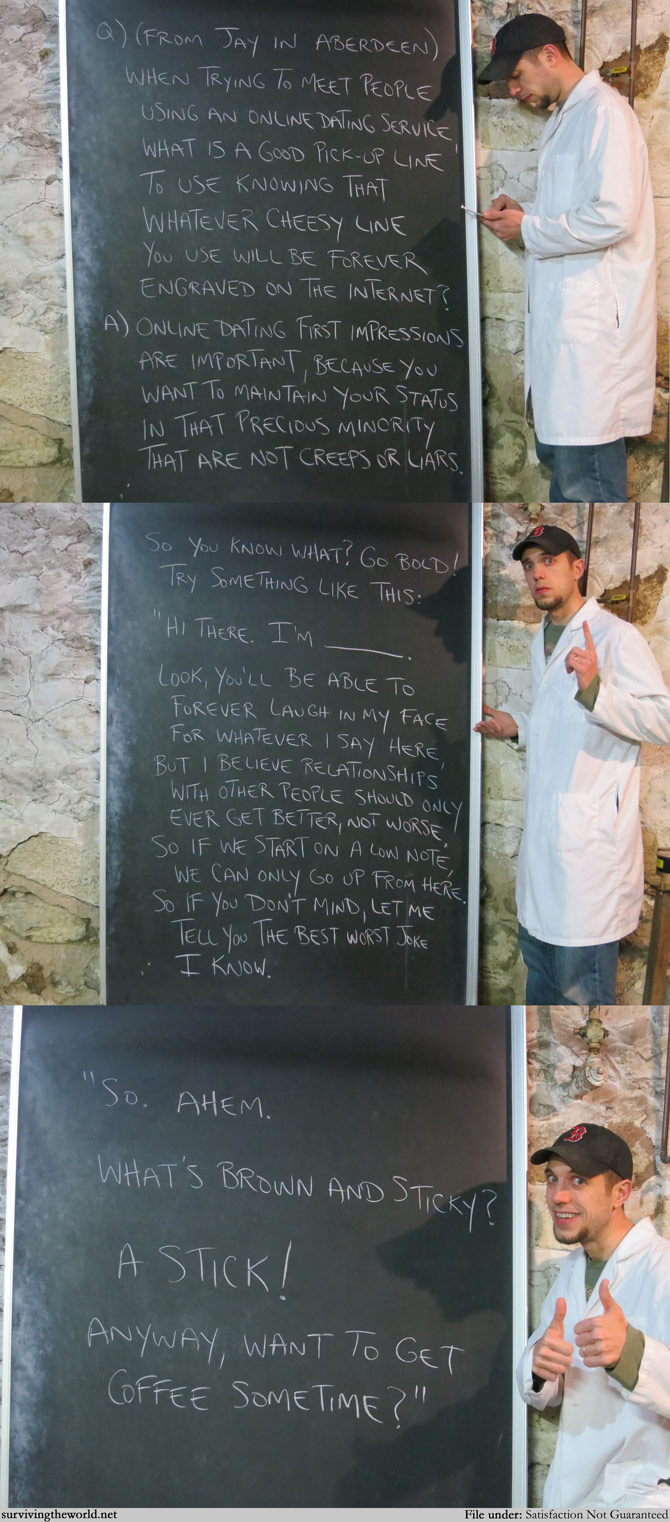 Q) (FROM JAY IN ABERDEEN)
WHEN TRYING TO MEET PEOPLE
USING AN ONLINE DATING SERVICE,
WHAT IS A GOOD PICK-UP LINE
TO USE KNOWING THAT
WHATEVER CHEESY LINE
YOU USE WILL BE FOREVER
ENGRAVED ON THE INTERNET?
A) ONLINE DATING FIRST IMPRESSIONS
ARE IMPORTANT, BECAUSE YOU
WANT TO MAINTAIN YOUR STATUS
IN THAT PRECIOUS MINORITY
THAT ARE NOT CREEPS OR LIARS.
SO YOU KNOW WHAT? GO BOLD!
TRY SOMETHING LIKE THIS:
"HI THERE. I'M ______.
LOOK, YOU'LL BE ABLE TO
FOREVER LAUGH IN MY FACE
FOR WHATEVER I SAY HERE,
BUT I BELIEVE RELATIONSHIPS
WITH OTHER PEOPLE SHOULD ONLY
EVER GET BETTER, NOT WORSE,
SO IF WE START ON A LOW NOTE,
WE CAN ONLY GO UP FROM HERE.
SO IF YOU DON'T MIND, LET ME
TELL YOU THE BEST WORST JOKE
I KNOW.
B
"SO. AHEM.
WHAT'S BROWN AND STICKY?
A STICK!
ANYWAY, WANT TO GET
COFFEE SOMETIME?"
B
survivingtheworld.net
File under: Satisfaction Not Guaranteed